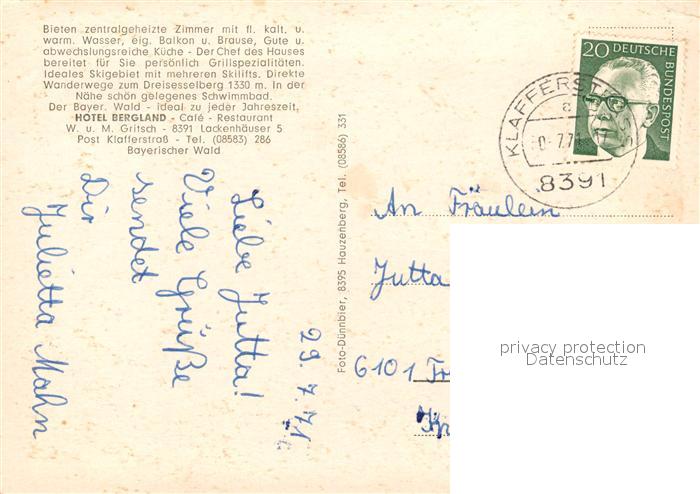 Bieten zentralgeheizte Zimmer mit fl. kalt. u.
warm. Wasser, eig. Balkon u. Brause, Gute u.
abwechslungsreiche Küche - Der Chef des Hauses
bereitet für Sie persönlich Grillspezialitäten.
Ideales Skigebiet mit mehreren Skilifts. Direkte
Wanderwege zum Dreisesselberg 1330 m. In der
Nähe schön gelegenes Schwimmbad.
Der Bayer. Wald - ideal zu jeder Jahreszeit.
HOTEL BERGLAND - Café - Restaurant
W. u. M. Gritsch - 8391 Lackenhäuser 5
Post Klafferstraß - Tel. (08583) 286
Bayerischer Wald
29.7.71
Liebe Jutta!
Viele Grüße
sendet
Dir
Julietta Mahn
Foto-Dünnbier, 8395 Hauzenberg, Tel. (08586) 331
20 DEUTSCHE
BUNDESPOST
a
8391
An Fräulein
Jutta
6101
privacy protection
Datenschutz